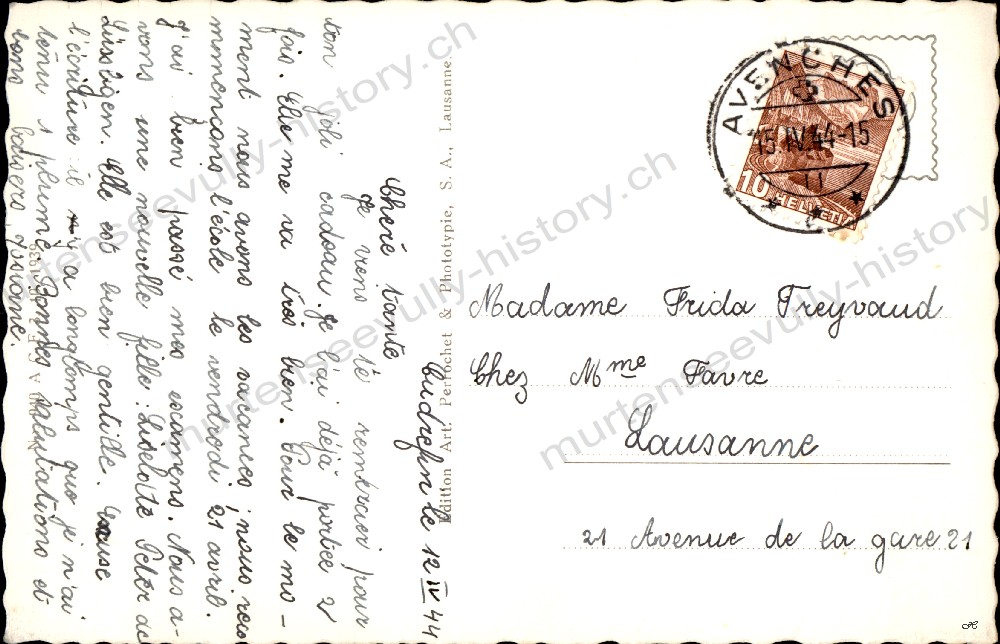 Cudrefin le 12 IV 44
Cheré tante
Je viens te remrcier pour
ton joli cadeau. Je l'ai déjà portée 2
fois. Elle me va très bien. Pour le mo-
ment nous avons les vacances, nous reco
mmençons l'école le vendredi 21 avril.
J'ai bien passé mes examens. Nous a-
vons une nouvelle fille: Liselotte Peter de
Lüssligem. Elle est bien gentille. Excuse
l'écriture il y a longtemps que je n'ai
tenu 1 plume. Bonnes salutations et
bons baisers. Josiane.
Edition Art. Perrochet & Phototypie, S. A., Lausanne.
AVENCHES
15.IV.44-15
10 HELVETIA
Madame Frida Treyvaud
Chez Mme Favre
Lausanne
21 Avenue de la gare 21
murtenseevully-history.ch
murtenseevully-history.ch
murtenseevully-history.ch